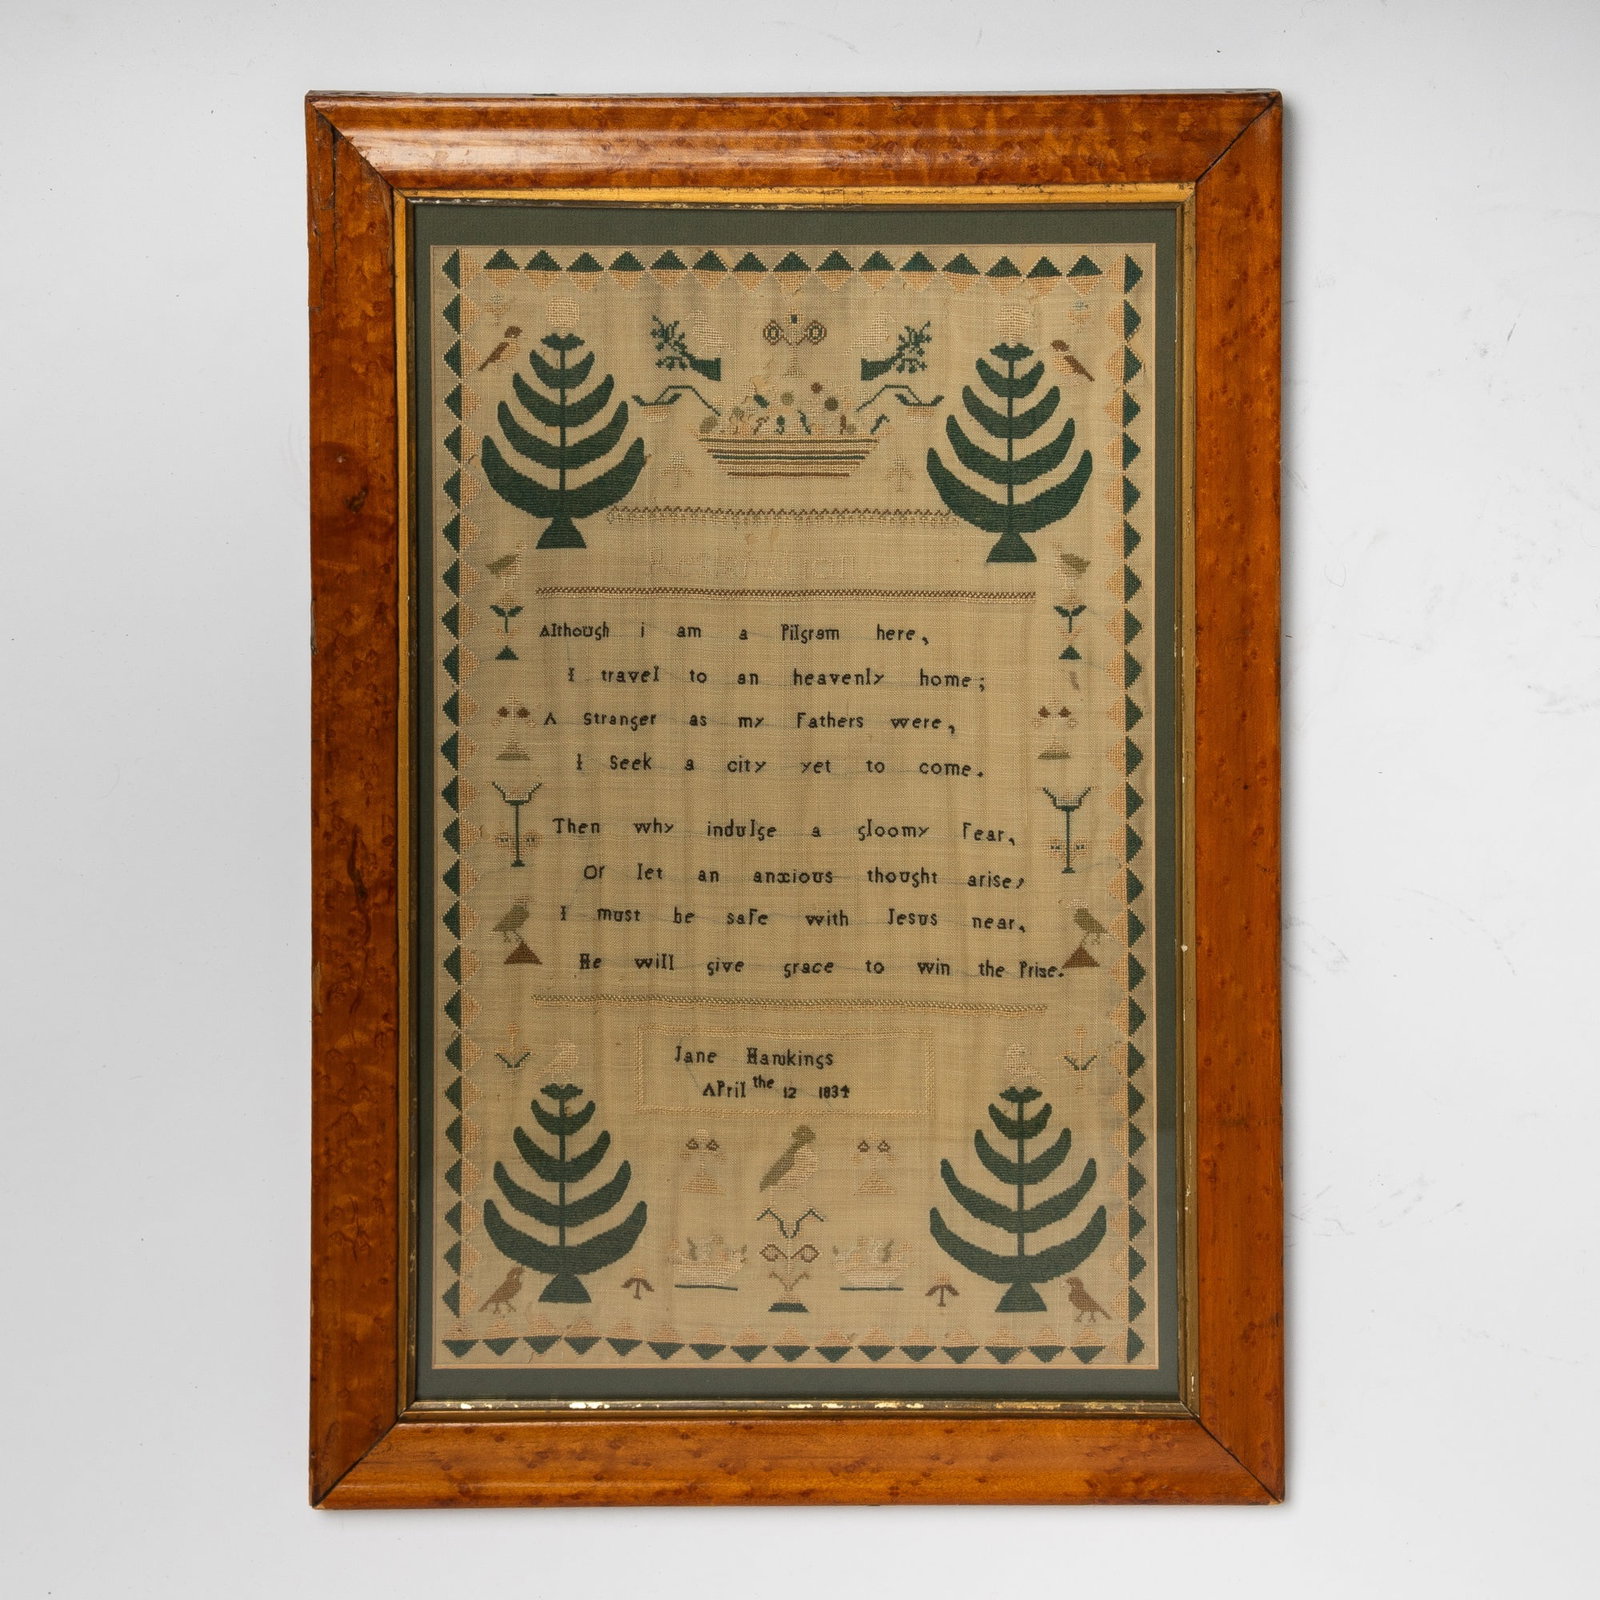 Resignation
Although i am a Pilgram here,
I travel to an heavenly home;
A Stranger as my Fathers were,
I Seek a city yet to come.
Then why indulge a gloomy Fear,
Or let an anxious thought arise,
I must be safe with Jesus near,
He will give grace to win the Prise.
Jane Hawkings
April the 12 1834